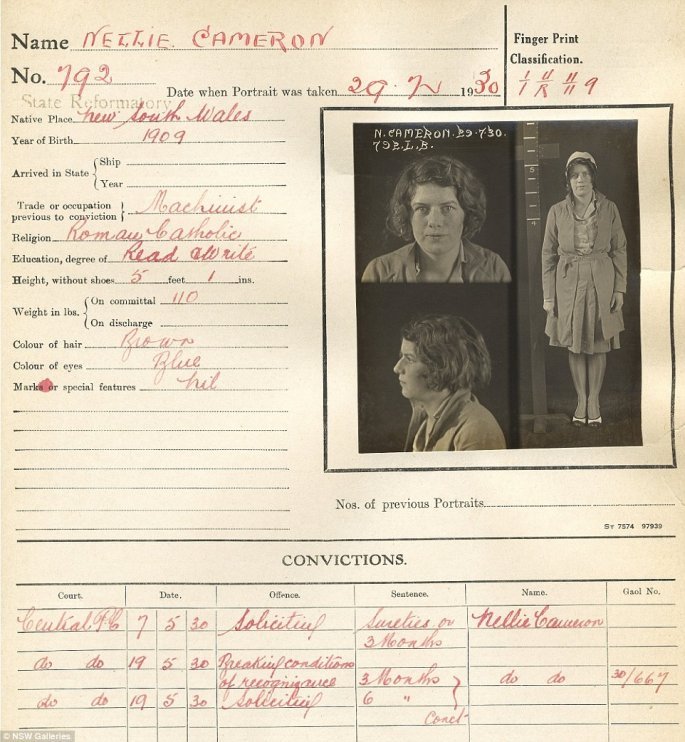 Name NELLIE CAMERON
No. 792
Date when Portrait was taken 29 · 7 · 1930
Finger Print
Classification.
State Reformatory
Native Place New South Wales
Year of Birth 1909
Arrived in State { Ship
Year
Trade or occupation
previous to conviction } Machinist
Religion Roman Catholic
Education, degree of Read & Write
Height, without shoes 5 feet 1 ins.
Weight in lbs. { On committal 110
On discharge
Colour of hair Brown
Colour of eyes Blue
Marks or special features nil
N. CAMERON. 29.7.30.
792.L.B.
Nos. of previous Portraits
ST 7574 97939
CONVICTIONS.
Court. Date. Offence. Sentence. Name. Gaol No.
Central P.C 7 5 30 Soliciting Sureties or Nellie Cameron
3 Months
do do 19 5 30 Breaking conditions
of recognizance 3 Months do do 30/667
do do 19 5 30 Soliciting 6 "
Conct
© NSW Galleries